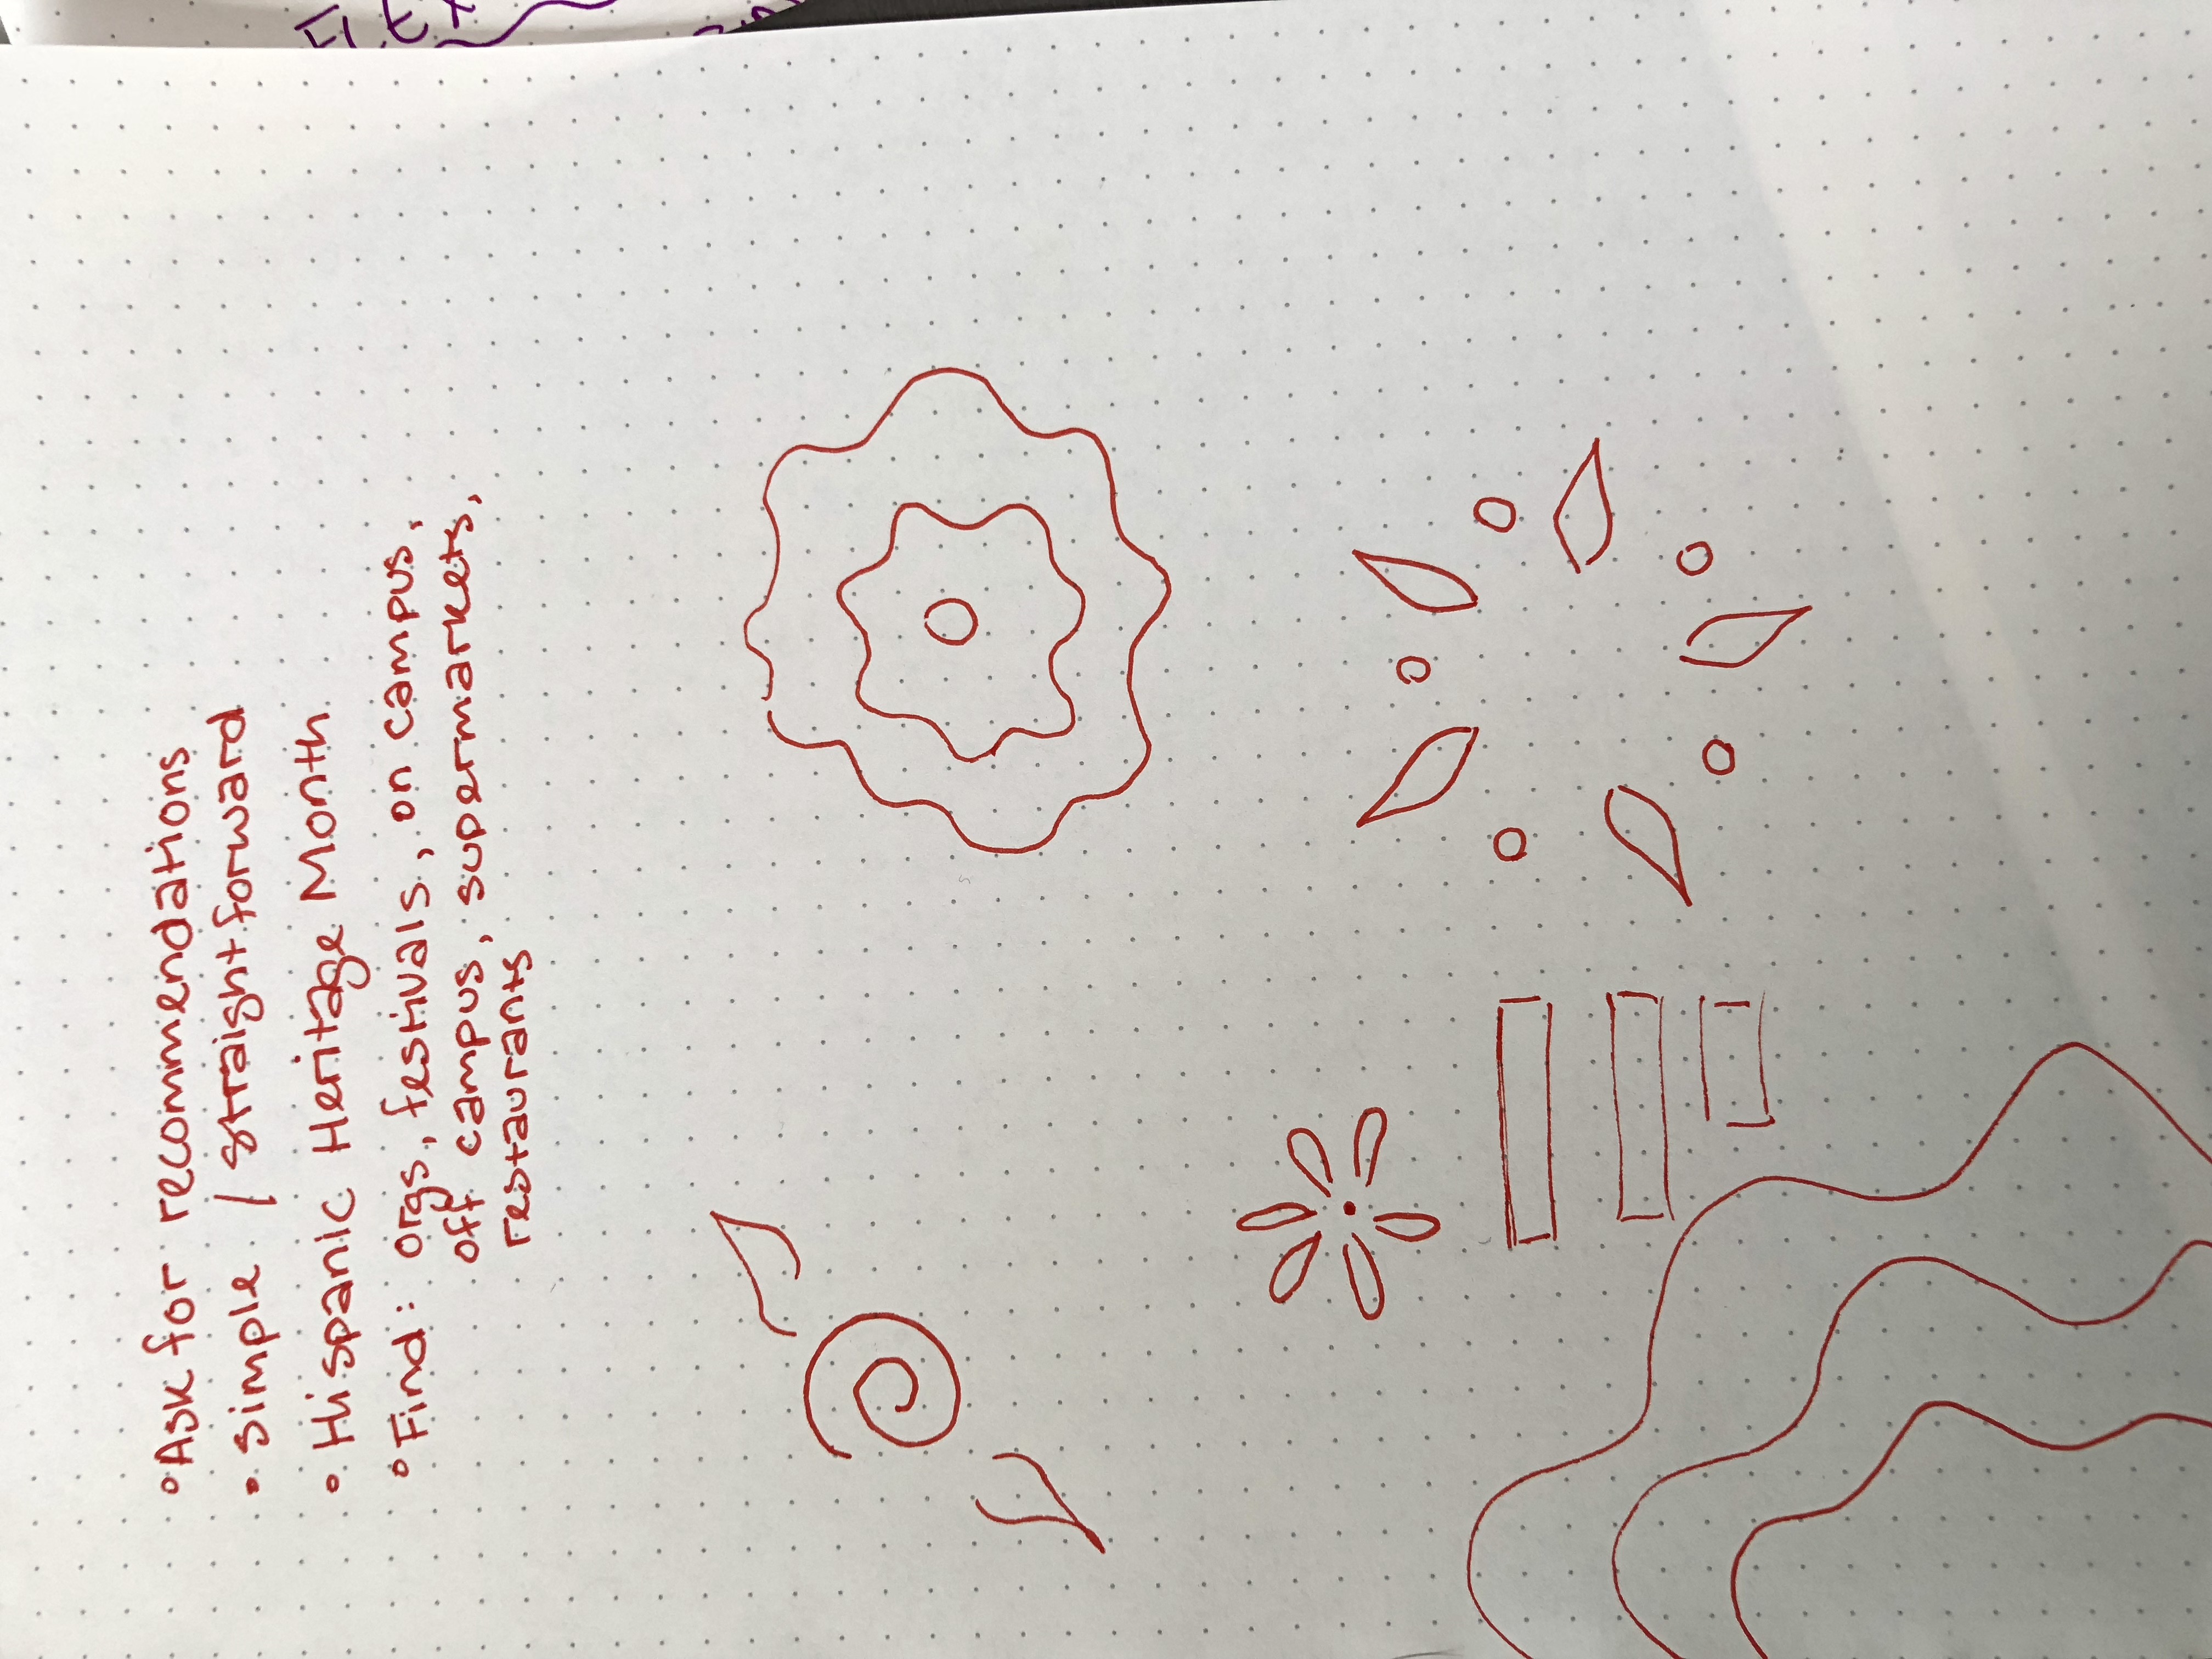 Ask for recommendations
Simple / straightforward
Hispanic Heritage Month
Find: orgs, festivals, on campus,
off campus, supermarkets,
restaurants